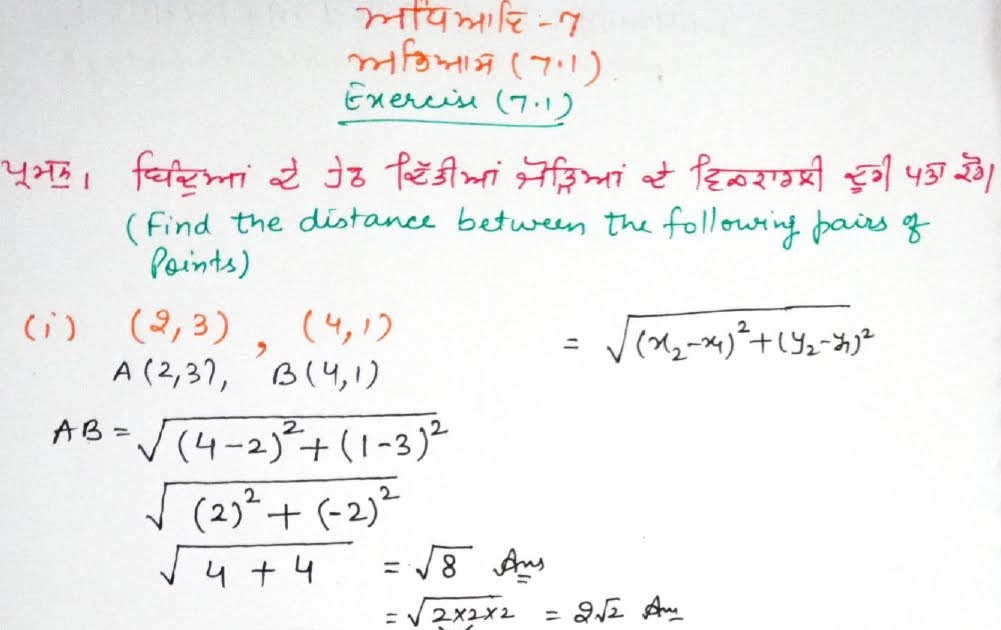 ਅਧਿਆਇ - 7
ਅਭਿਆਸ (7.1)
Exercise (7.1)
ਪ੍ਰਸ਼ਨ 1 ਬਿੰਦੂਆਂ ਦੇ ਹੇਠ ਦਿੱਤੀਆਂ ਜੋੜਿਆਂ ਦੇ ਦੂਰੀ ਪਤਾ ਕਰੋ।
(Find the distance between the following pairs of
Points)
(i) (2,3) , (4,1) = √(x₂-x₁)²+(y₂-y₁)²
A(2,3), B(4,1)
AB = √(4-2)²+(1-3)²
√(2)²+(-2)²
√4+4 = √8 Ans
= √2×2×2 = 2√2 Ans